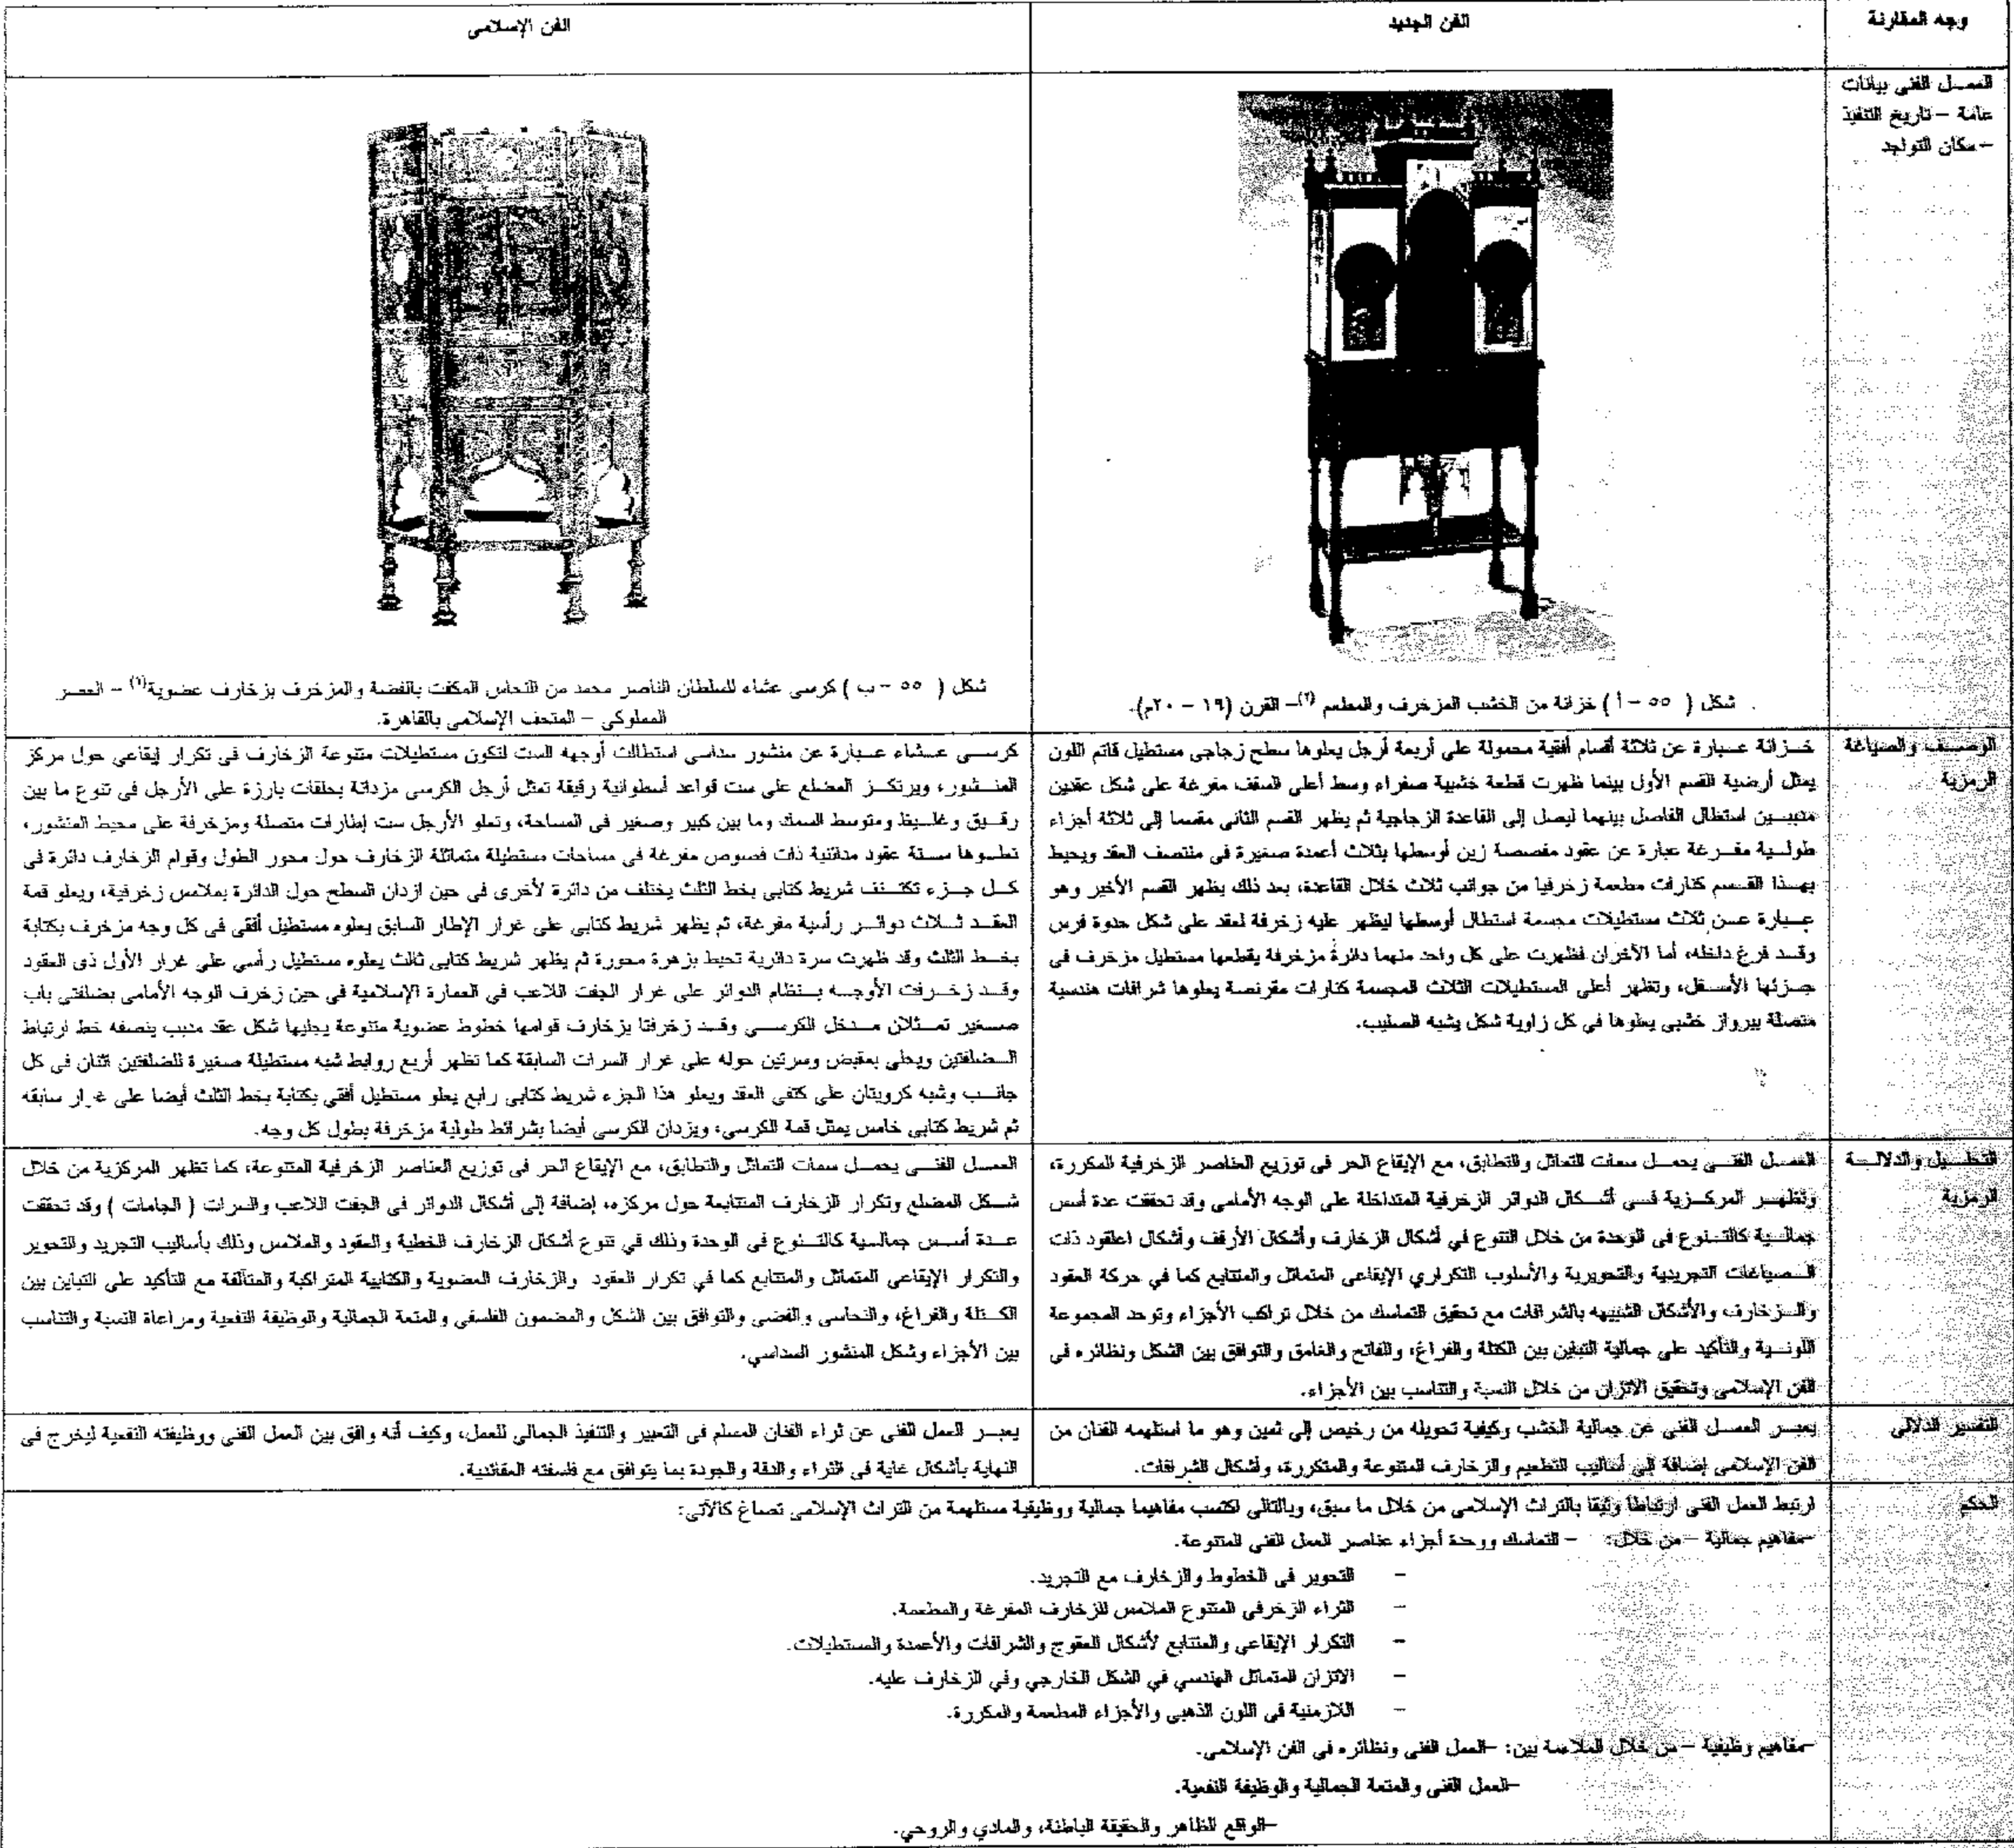 وجه المقارنة
الفن الجديد
الفن الإسلامى
العمـــل الفنى بيانات
عامة – تاريخ التنفيذ
– مكان التواجد
شكل ( ٥٥ – أ ) خزانة من الخشب المزخرف والمطعم (٢)– القرن (١٩ – ٢٠م).
شكل ( ٥٥ – ب ) كرسى عشاء للسلطان الناصر محمد من النحاس المكفت بالفضة والمزخرف بزخارف عضوية(١) – العصر
المملوكى – المتحف الإسلامى بالقاهرة.
الوصــف والصياغة
الرمزية
خــزانة عــبارة عن ثلاثة أقسام أفقية محمولة على أربعة أرجل يعلوها سطح زجاجى مستطيل قاتم اللون
يمثل أرضية القسم الأول بينما ظهرت قطعة خشبية صفراء وسط أعلى السقف مفرغة على شكل عقدين
مدببــين استطال الفاصل بينهما ليصل إلى القاعدة الزجاجية ثم يظهر القسم الثانى مقسما إلى ثلاثة أجزاء
طولــية مفــرغة عبارة عن عقود مفصصة زين أوسطها بثلاث أعمدة صغيرة فى منتصف العقد ويحيط
بهــذا القــسم كنارات مطعمة زخرفيا من جوانب ثلاث خلال القاعدة، بعد ذلك يظهر القسم الأخير وهو
عــبارة عــن ثلاث مستطيلات مجسمة استطال أوسطها ليظهر عليه زخرفة لعقد على شكل حدوة فرس
وقــد فرغ داخله، أما الآخران فظهرت على كل واحد منهما دائرة مزخرفة يقطعها مستطيل مزخرف فى
جــزئها الأســفل، وتظهر أعلى المستطيلات الثلاث المجسمة كنارات مقرنصة يعلوها شرافات هندسية
متصلة ببرواز خشبى يعلوها فى كل زاوية شكل يشبه الصليب.
كرســى عــشاء عــبارة عن منشور سداسى استطالت أوجهه الست لتكون مستطيلات متنوعة الزخارف فى تكرار إيقاعى حول مركز
المنــشور، ويرتكــز المضلع على ست قواعد أسطوانية رقيقة تمثل أرجل الكرسى مزدانة بحلقات بارزة على الأرجل فى تنوع ما بين
رقــيق وغلــيظ ومتوسط السمك وما بين كبير وصغير فى المساحة، وتعلو الأرجل ست إطارات متصلة ومزخرفة على محيط المنشور،
تعلــوها ســتة عقود مدائنية ذات فصوص مفرغة فى مساحات مستطيلة متماثلة الزخارف حول محور الطول وقوام الزخارف دائرة فى
كــل جــزء تكتــنف شريط كتابى بخط الثلث يختلف من دائرة لأخرى فى حين ازدان السطح حول الدائرة بملامس زخرفية، ويعلو قمة
العقــد ثــلاث دوائــر رأسية مفرغة، ثم يظهر شريط كتابى على غرار الإطار السابق يعلوه مستطيل أفقى فى كل وجه مزخرف بكتابة
بخــط الثلث وقد ظهرت سرة دائرية تحيط بزهرة محورة ثم يظهر شريط كتابى ثالث يعلوه مستطيل رأسي على غرار الأول ذى العقود
وقــد زخــرفت الأوجــه بــنظام الدوائر على غرار الجفت اللاعب فى العمارة الإسلامية فى حين زخرف الوجه الأمامى بضلفتى باب
صــغير تمــثلان مــدخل الكرســى وقــد زخرفتا بزخارف قوامها خطوط عضوية متنوعة يجليها شكل عقد مدبب ينصفه خط ارتباط
الــضلفتين ويحلى بمقبض وسرتين حوله على غرار السرات السابقة كما تظهر أربع روابط شبه مستطيلة صغيرة للضلفتين اثنان فى كل
جانــب وشبه كرويتان على كتفى العقد ويعلو هذا الجزء شريط كتابى رابع يعلو مستطيل أفقى بكتابة بخط الثلث أيضا على غرار سابقه
ثم شريط كتابى خامس يمثل قمة الكرسى، ويزدان الكرسى أيضا بشرائط طولية مزخرفة بطول كل وجه.
التحلــيل والدلالــة
الرمزية
العمــل الفنــى يحمــل سمات التماثل والتطابق، مع الإيقاع الحر فى توزيع العناصر الزخرفية المكررة،
وتظهــر المركــزية فــى أشــكال الدوائر الزخرفية المتداخلة على الوجه الأمامى وقد تحققت عدة أسس
جمالــية كالتــنوع فى الوحدة من خلال التنوع في أشكال الزخارف وأشكال الأرفف وأشكال اعلقود ذات
الــصياغات التجريدية والتحويرية والأسلوب التكراري الإيقاعى المتماثل والمتتابع كما في حركة العقود
والــزخارف والأشكال الشبيهه بالشرافات مع تحقيق التماسك من خلال تراكب الأجزاء وتوحد المجموعة
اللونــية والتأكيد على جمالية التباين بين الكتلة والفراغ، والفاتح والغامق والتوافق بين الشكل ونظائره فى
الفن الإسلامى وتحقيق الاتزان من خلال النسبة والتناسب بين الأجزاء.
العمــل الفنــى يحمــل سمات التماثل والتطابق، مع الإيقاع الحر فى توزيع العناصر الزخرفية المتنوعة، كما تظهر المركزية من خلال
شــكل المضلع وتكرار الزخارف المتتابعة حول مركزه، إضافة إلى أشكال الدوائر فى الجفت اللاعب والسرات ( الجامات ) وقد تحققت
عــدة أســس جمالــية كالتــنوع فى الوحدة وذلك في تنوع أشكال الزخارف الخطية والعقود والملامس وذلك بأساليب التجريد والتحوير
والتكرار الإيقاعي المتماثل والمتتابع كما في تكرار العقود والزخارف العضوية والكتابية المتراكبة والمتآلفة مع التأكيد على التباين بين
الكــتلة والفراغ، والنحاسى والفضى والتوافق بين الشكل والمضمون الفلسفى والمتعة الجمالية والوظيفة النفعية ومراعاة النسبة والتناسب
بين الأجزاء وشكل المنشور السداسي.
التفسير الدلالى
يعبــر العمــل الفنى عن جمالية الخشب وكيفية تحويله من رخيص إلى ثمين وهو ما استلهمه الفنان من
الفن الإسلامى إضافة إلى أساليب التطعيم والزخارف المتنوعة والمتكررة، وأشكال الشرافات.
يعبــر العمل الفنى عن ثراء الفنان المسلم فى التعبير والتنفيذ الجمالي للعمل، وكيف أنه وافق بين العمل الفنى ووظيفته النفعية ليخرج فى
النهاية بأشكال غاية فى الثراء والدقة والجودة بما يتوافق مع فلسفته العقائدية.
الحكم
ارتبط العمل الفنى ارتباطا وثيقا بالتراث الإسلامى من خلال ما سبق، وبالتالى اكتسب مفاهيما جمالية ووظيفية مستلهمة من التراث الإسلامى تصاغ كالآتى:
–مفاهيم جمالية – من خلال: – التماسك ووحدة أجزاء عناصر العمل الفنى المتنوعة.
– التحوير فى الخطوط والزخارف مع التجريد.
– الثراء الزخرفى المتنوع الملامس للزخارف المفرغة والمطعمة.
– التكرار الإيقاعى والمتتابع لأشكال العقوج والشرافات والأعمدة والمستطيلات.
– الاتزان المتماثل الهندسي في الشكل الخارجي وفي الزخارف عليه.
– اللازمنية فى اللون الذهبى والأجزاء المطعمة والمكررة.
–مفاهيم وظيفية – من خلال الملاءمة بين: –العمل الفنى ونظائره فى الفن الإسلامى.
–العمل الفنى والمتعة الجمالية والوظيفة النفعية.
–الواقع الظاهر والحقيقة الباطنة، والمادي والروحي.